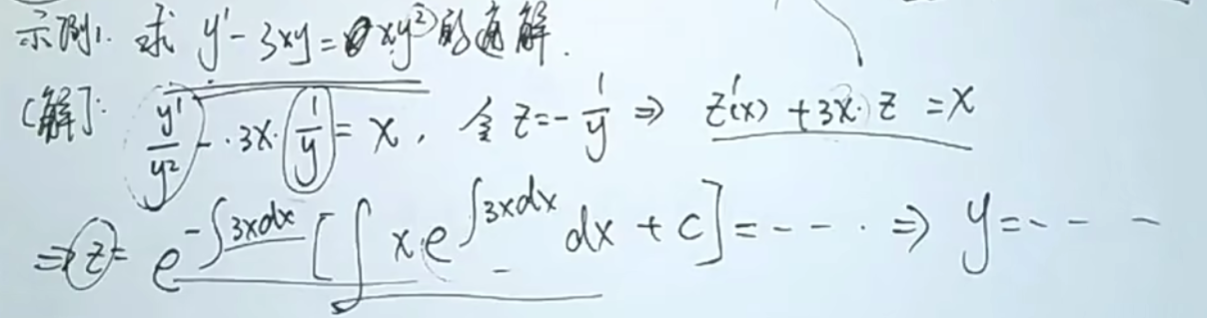 示例1. 求 y' - 3xy = xy² 的通解.
[解]: y'/y² - 3x·1/y = x, 令 z = -1/y ⇒ z'(x) + 3x·z = x
⇒ z = e^(-∫3xdx) [∫ x·e^(∫3xdx) dx + C] = ---- ⇒ y = ---